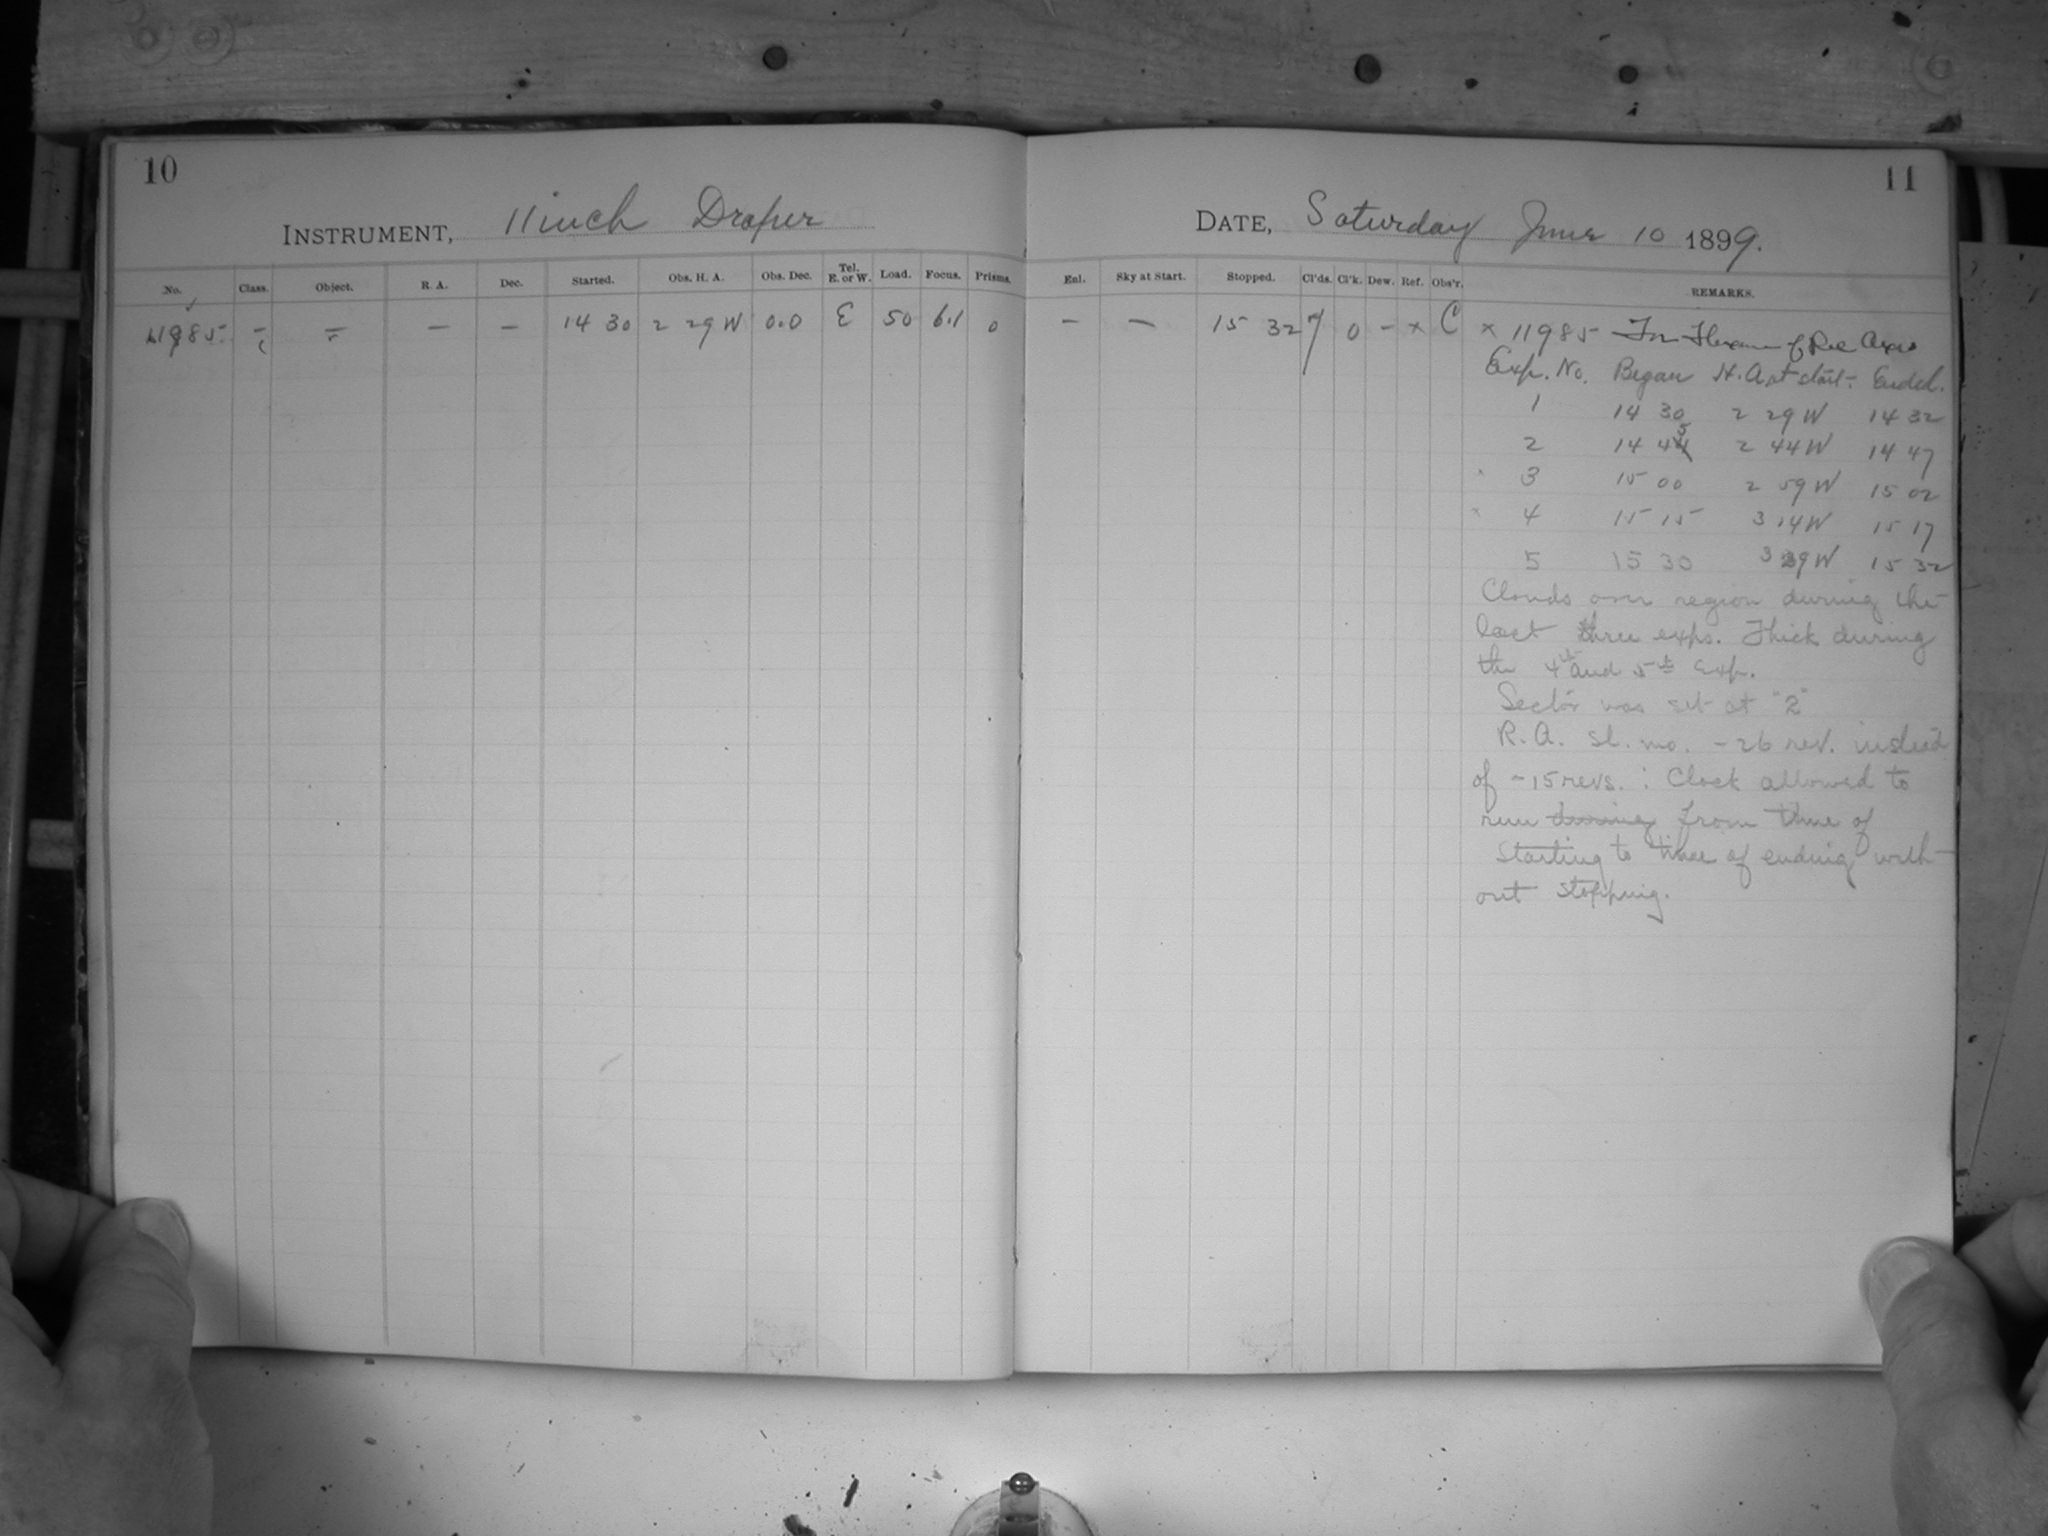 10
INSTRUMENT, 11 inch Draper
No. Class. Object. R. A. Dec. Started. Obs. H. A. Obs. Dec. Tel. E. or W. Load. Focus. Prisms.
11985 - - - - 14 30 2 29 W 0.0 E 50 6.1 0
11
DATE, Saturday June 10 1899.
Enl. Sky at Start. Stopped. Cl'ds. Cl'k. Dew. Ref. Obs'r. REMARKS.
- - 15 32 7 0 - x C x 11985 For Flexure of Pol Axis
Exp. No. Began H. A at start - Ended.
1 14 30 2 29 W 14 32
2 14 45 2 44 W 14 47
x 3 15 00 2 59 W 15 02
x 4 15 15 3 14 W 15 17
5 15 30 3 29 W 15 32
Clouds over region during the
last three exps. Thick during
the 4th and 5th Exp.
Sector was set at "2"
R. A. sl. mo. - 26 rev. instead
of - 15 revs. : Clock allowed to
run during from time of
starting to time of ending with-
out stopping.